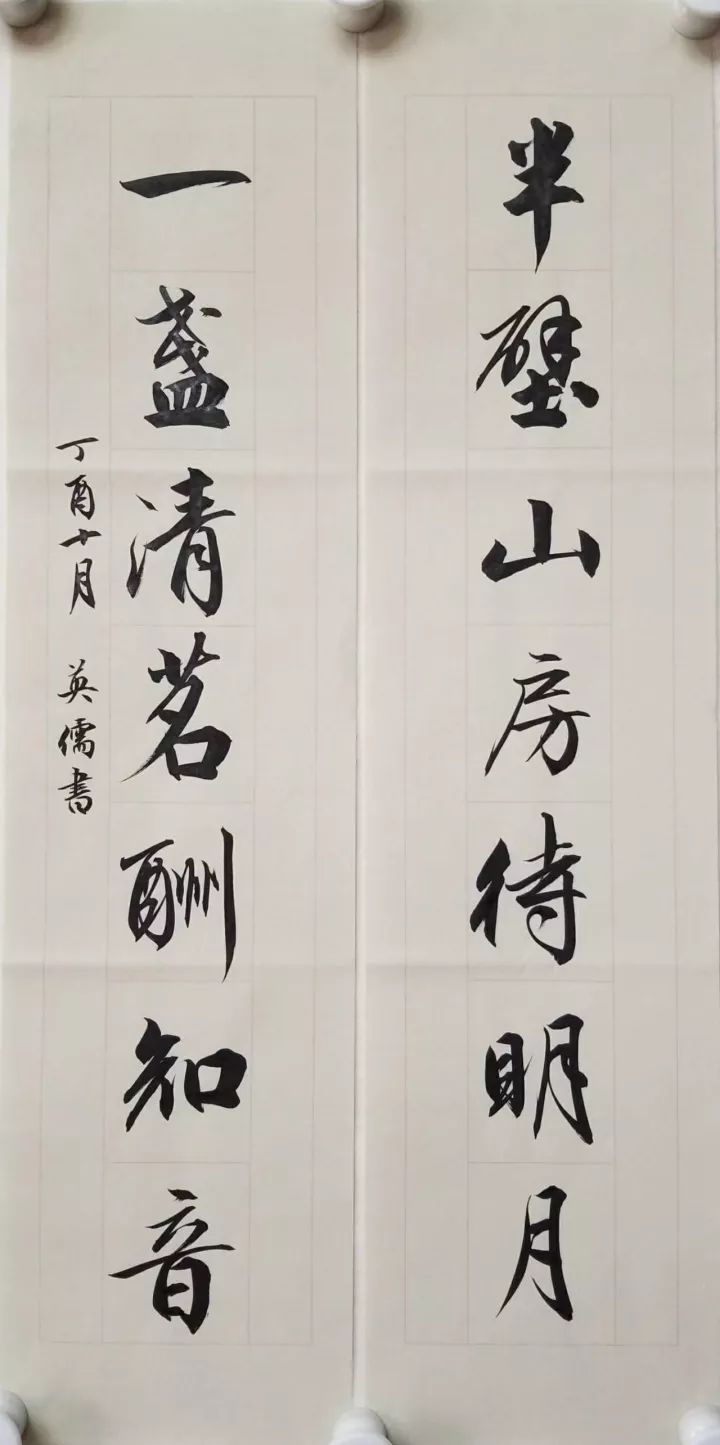 半壁山房待明月
一盏清茗酬知音
丁酉十月 英儒书